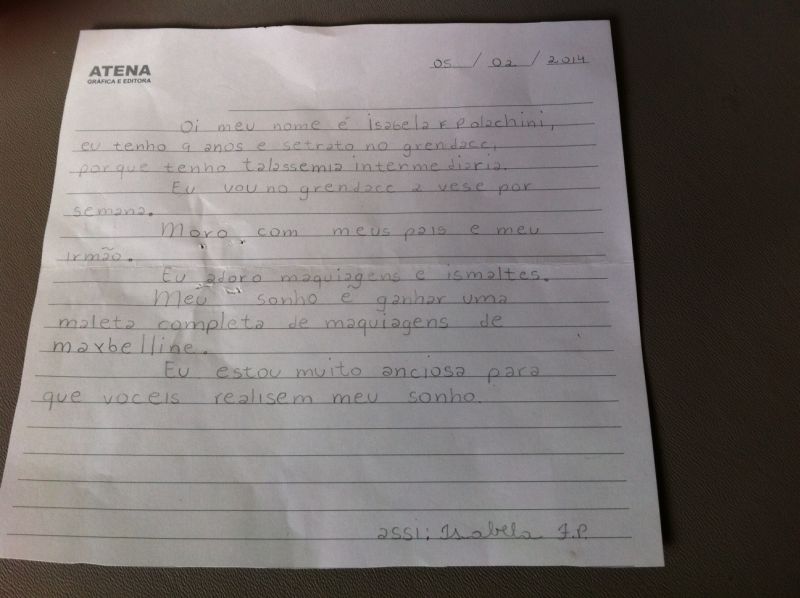 ATENA
GRÁFICA E EDITORA
05 / 02 / 2014
Oi meu nome é isabela F Polachini,
eu tenho 9 anos e setrato no grendacc,
porque tenho talassemia intermediaria.
Eu vou no grendacc 2 vese por
semana.
Moro com meus pais e meu
irmão.
Eu adoro maquiagens e ismaltes.
Meu sonho é ganhar uma
maleta completa de maquiagens de
maxbelline.
Eu estou muito anciosa para
que voceis realisem meu sonho.
assi: Isabela F.P.